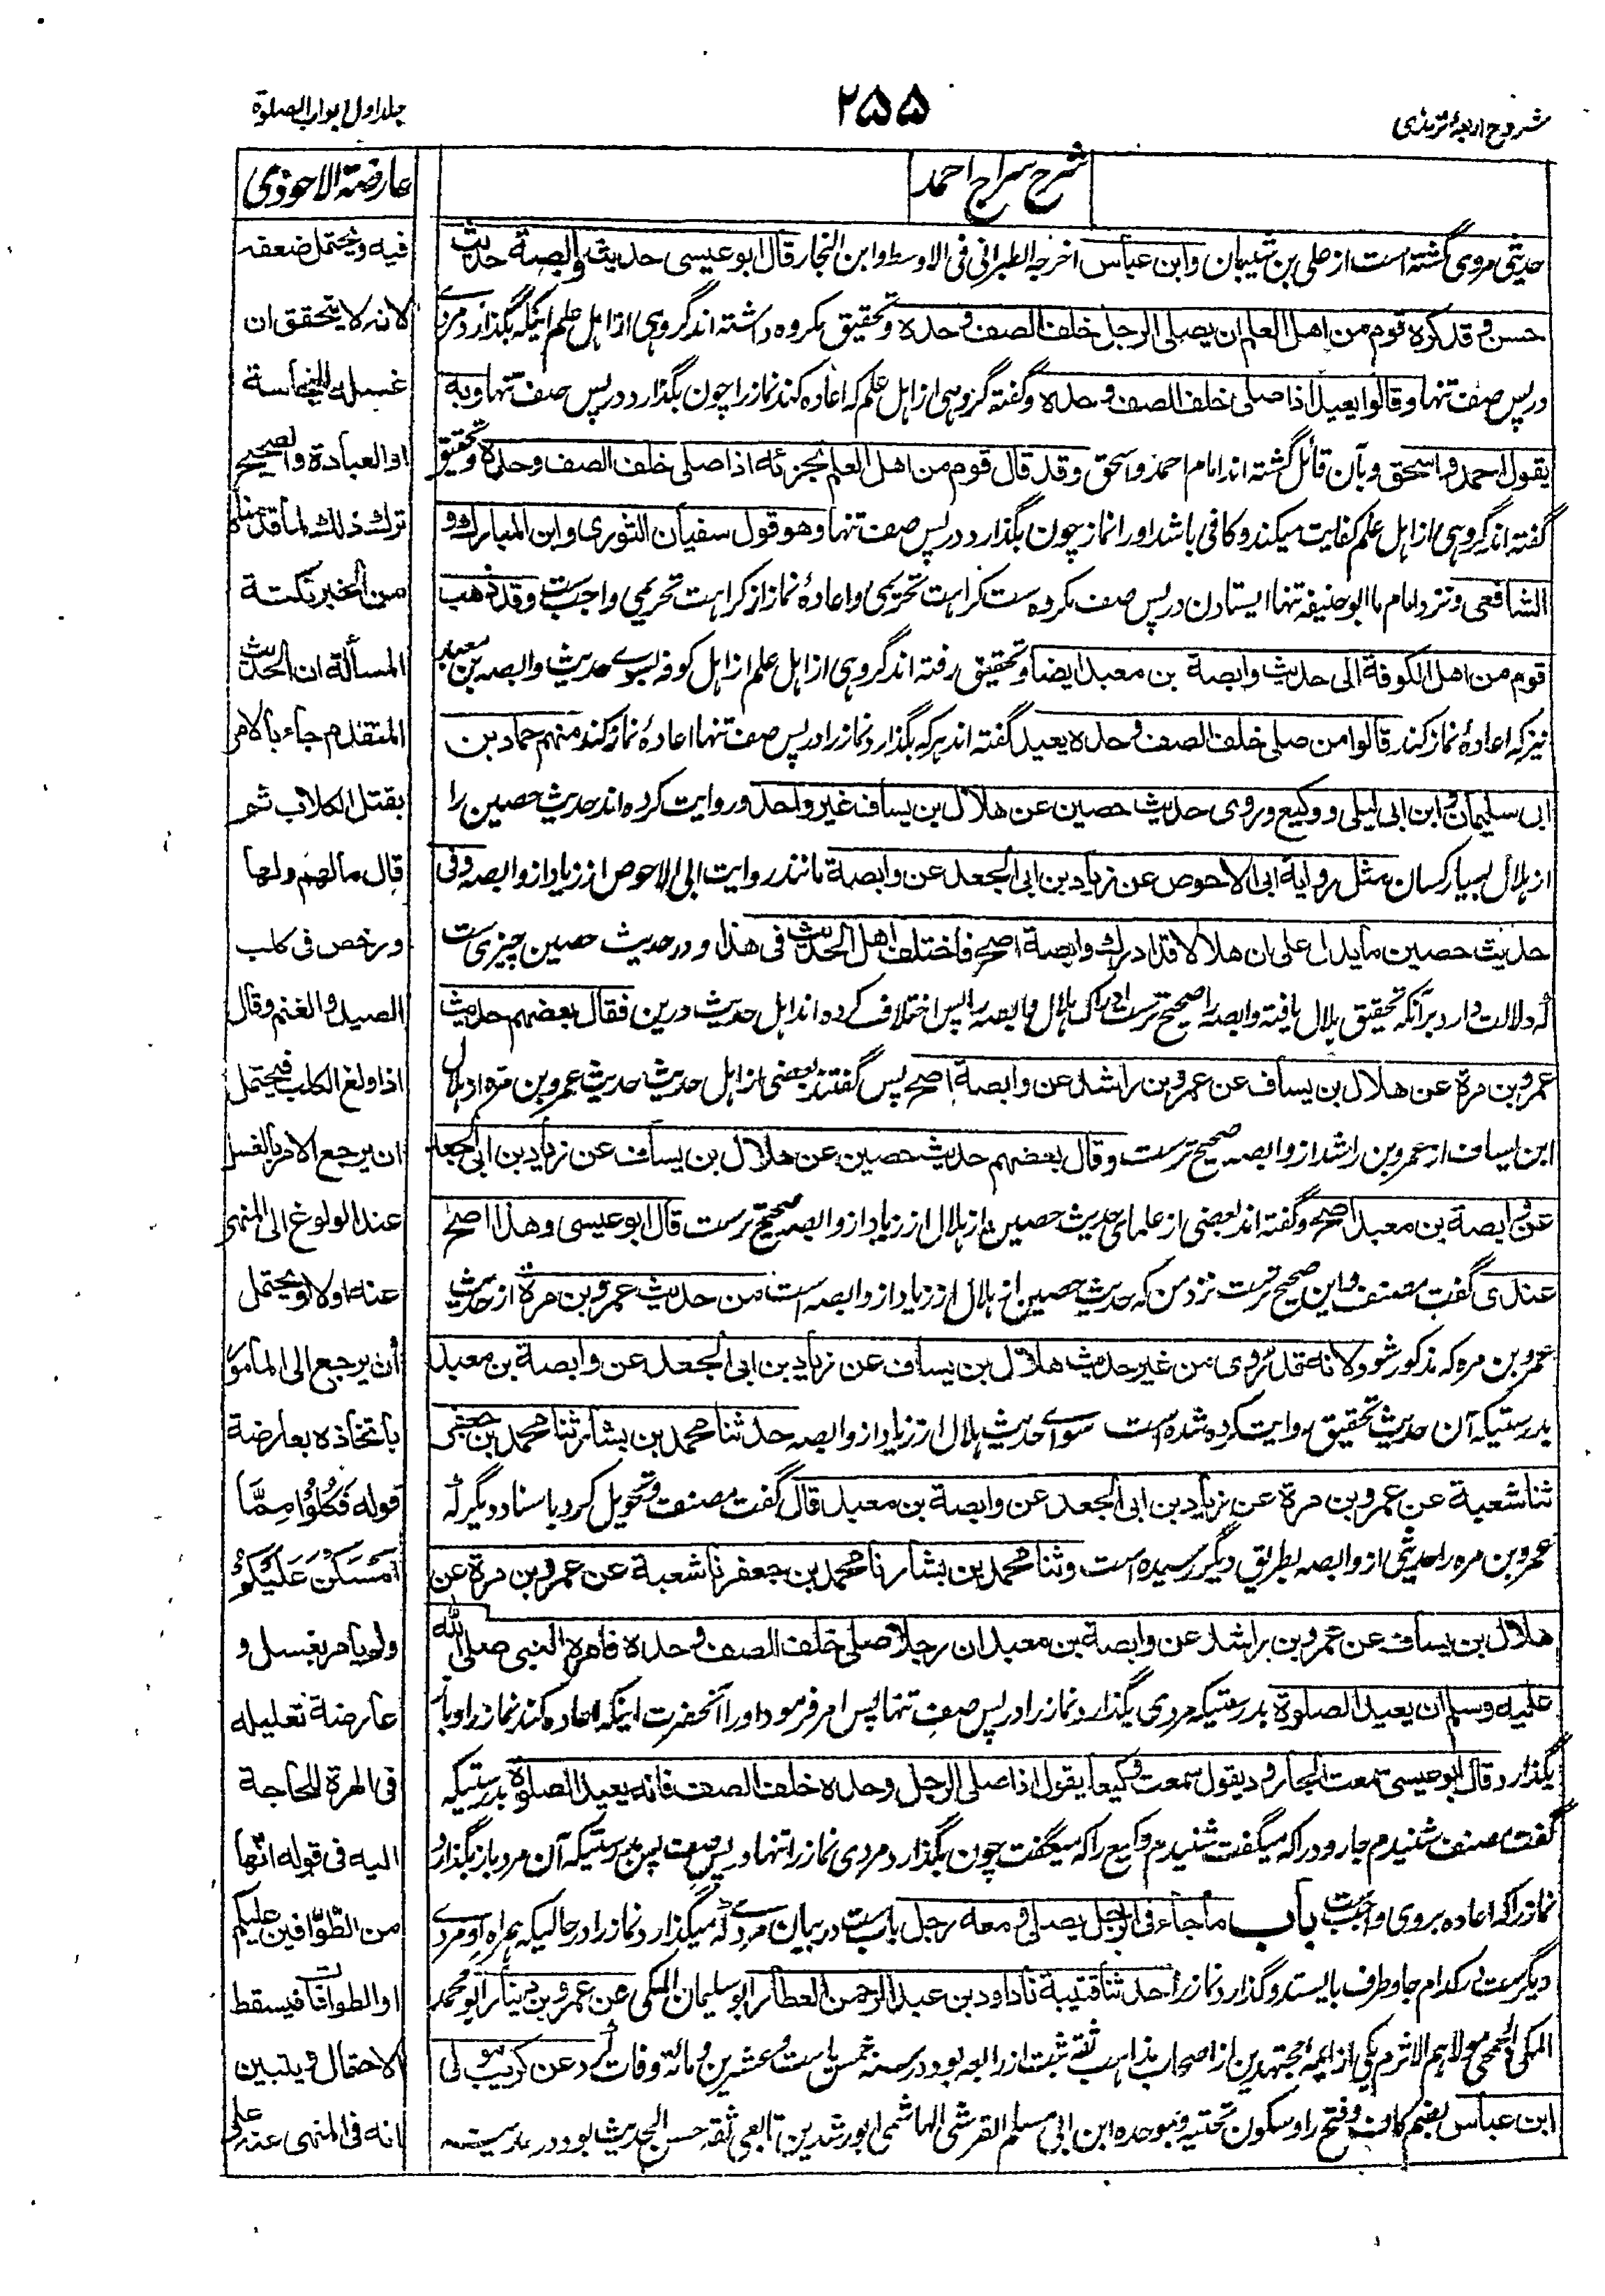 شروح اربعهٔ ترمذی
۲۵۵
جلد اول ابواب الصلوة
شرح سراج احمد
حدیثی مروی گشته است از علی بن شیبان وابن عباس اخرجه الطبرانی فی الاوسط وابن النجار قال ابو عیسی حدیث وابصة حدیث
حسن وقد کره قوم من اهل العلم ان یصلی الرجل خلف الصف وحده وتحقیق مکروه داشته اند گروهی از اهل علم اینکه بگذارد مردے
در پس صف تنها وقالوا یعید اذا صلی خلف الصف وحده وگفته گروهی از اهل علم که اعاده کند نماز را چون بگذارد در پس صف تنها وبه
یقول احمد واسحق وبآن قائل گشته اند امام احمد واسحق وقد قال قوم من اهل العلم یجزئه اذا صلی خلف الصف وحده وتحقیق
گفته اند گروهی از اهل علم کفایت میکند وکافی باشد او را نماز چون بگذارد در پس صف تنها وهو قول سفیان الثوری وابن المبارک و
الشافعی ونزد امام ما ابو حنیفه تنها ایستادن در پس صف مکروه ست کراهت تحریمی واعادهٔ نماز از کراهت تحریمی واجب ست وقد ذهب
قوم من اهل الکوفة الی حدیث وابصة بن معبد ایضا وتحقیق رفته اند گروهی از اهل علم از اهل کوفه بسوے حدیث وابصه بن معبد
نیز که اعادهٔ نماز کند قالوا من صلی خلف الصف وحده یعید گفته اند هر که بگذارد نماز را در پس صف تنها اعادهٔ نماز کند منهم حماد بن
ابی سلیمان وابن ابی لیلی ووکیع وروی حدیث حصین عن هلال بن یساف غیر واحد وروایت کرده اند حدیث حصین را
از هلال بسیار کسان مثل روایة ابی الاحوص عن زیاد بن ابی الجعد عن وابصة مانند روایت ابی الاحوص از زیاد از وابصه وفی
حدیث حصین ما یدل علی ان هلالا قد ادرک وابصة اصح فاختلف اهل الحدیث فی هذا ودر حدیث حصین چیزی ست
که دلالت دارد بر آنکه تحقیق هلال یافته وابصه را صحیح تر ست ادراک هلال وابصه را پس اختلاف کرده اند اهل حدیث درین فقال بعضهم حدیث
عمرو بن مرة عن هلال بن یساف عن عمرو بن راشد عن وابصة اصح پس گفتند بعضی از اهل حدیث حدیث عمرو بن مره از هلال
ابن یساف از عمرو بن راشد از وابصه صحیح تر ست وقال بعضهم حدیث حصین عن هلال بن یساف عن زیاد بن ابی الجعد
عن وابصة بن معبد اصح وگفته اند بعضی از علمای حدیث حصین از هلال از زیاد از وابصه صحیح تر ست قال ابو عیسی وهذا اصح
عندی گفت مصنف واین صحیح تر ست نزد من که حدیث حصین از هلال از زیاد از وابصه است من حدیث عمرو بن مرة از حدیث
عمرو بن مره که مذکور شود لانه قد روی من غیر حدیث هلال بن یساف عن زیاد بن ابی الجعد عن وابصة بن معبد
بدرستیکه آن حدیث تحقیق روایت کرده شده است سواے حدیث هلال از زیاد از وابصه حدثنا محمد بن بشار ثنا محمد بن جعفر
ثنا شعبة عن عمرو بن مرة عن زیاد بن ابی الجعد عن وابصة بن معبد قال گفت مصنف وتحویل کرد باسناد دیگر که
عمرو بن مره را حدیثی از وابصه بطریق دیگر رسیده است وثنا محمد بن بشار نا محمد بن جعفر نا شعبة عن عمرو بن مرة عن
هلال بن یساف عن عمرو بن راشد عن وابصة بن معبد ان رجلا صلی خلف الصف وحده فامره النبی صلی الله
علیه وسلم ان یعید الصلوة بدرستیکه مردی بگذارد نماز را در پس صف تنها پس امر فرمود او را آنحضرت اینکه اعاده کند نماز را وباز
بگذارد قال ابو عیسی سمعت الجارود یقول سمعت وکیعا یقول اذا صلی الرجل وحده خلف الصف فانه یعید الصلوة بدرستیکه
گفت مصنف شنیدم جارود را که میگفت شنیدم وکیع را که میگفت چون بگذارد مردی نماز را تنها در پس صف پس بدرستیکه آن مرد باز بگذارد
نماز را که اعاده بروی واجب ست باب ما جاء فی الرجل یصلی ومعه رجل باب ست در بیان مردے که میگذارد نماز را در حالیکه همراه او مردے
دیگر ست که کدام جا وطرف بایستد وگذارد نماز را حدثنا قتیبة نا داود بن عبد الرحمن العطار ابو سلیمان المکی عن عمرو بن دینار ابو محمد
المکی الجمحی مولاهم الاثرم یکی از ائمه مجتهدین از اصحاب مذاهب ثقه ثبت از رابعه بود در سنه خمس یا ست وعشرین ومائة وفات کرد عن کریب مولی
ابن عباس بضم کاف وفتح را وسکون تحتیه وموحده ابن ابی مسلم القرشی الهاشمی ابو رشدین تابعی ثقه حسن الحدیث بود در مدینه
عارضة الاحوذی
فیه ویحتمل ضعفه
لانه لا یتحقق ان
غسله للنجاسة
او العبادة والصحیح
ترک ذلک لما قدمناه
من الخبر نکتة
المسألة ان الحدیث
المتقدم جاء بالامر
بقتل الکلاب ثم
قال مالهم ولها
ورخص فی کلب
الصید والغنم وقال
اذا ولغ الکلب فیحتمل
ان یرجع الامر بالغسل
عند الولوغ الی المنهی
عنه اولا ویحتمل
أن یرجع الی المأمور
باتخاذه بعارضة
قوله فَكُلُوْا مِمَّا
اَمْسَكْنَ عَلَيْكُمْ
ولم یأمر بغسل و
عارضة تعلیله
فی الهرة للحاجة
الیه فی قوله انّها
من الطّوّافین علیکم
او الطوافات فیسقط
الاحتمال ویتبین
انه فی المنهی عنه علی